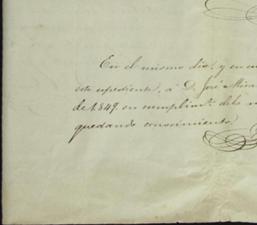 En el mismo dia, y en cu
este espediente, á D. José Mira
de 1849. en cumplimto. delo m
quedando conocimiento